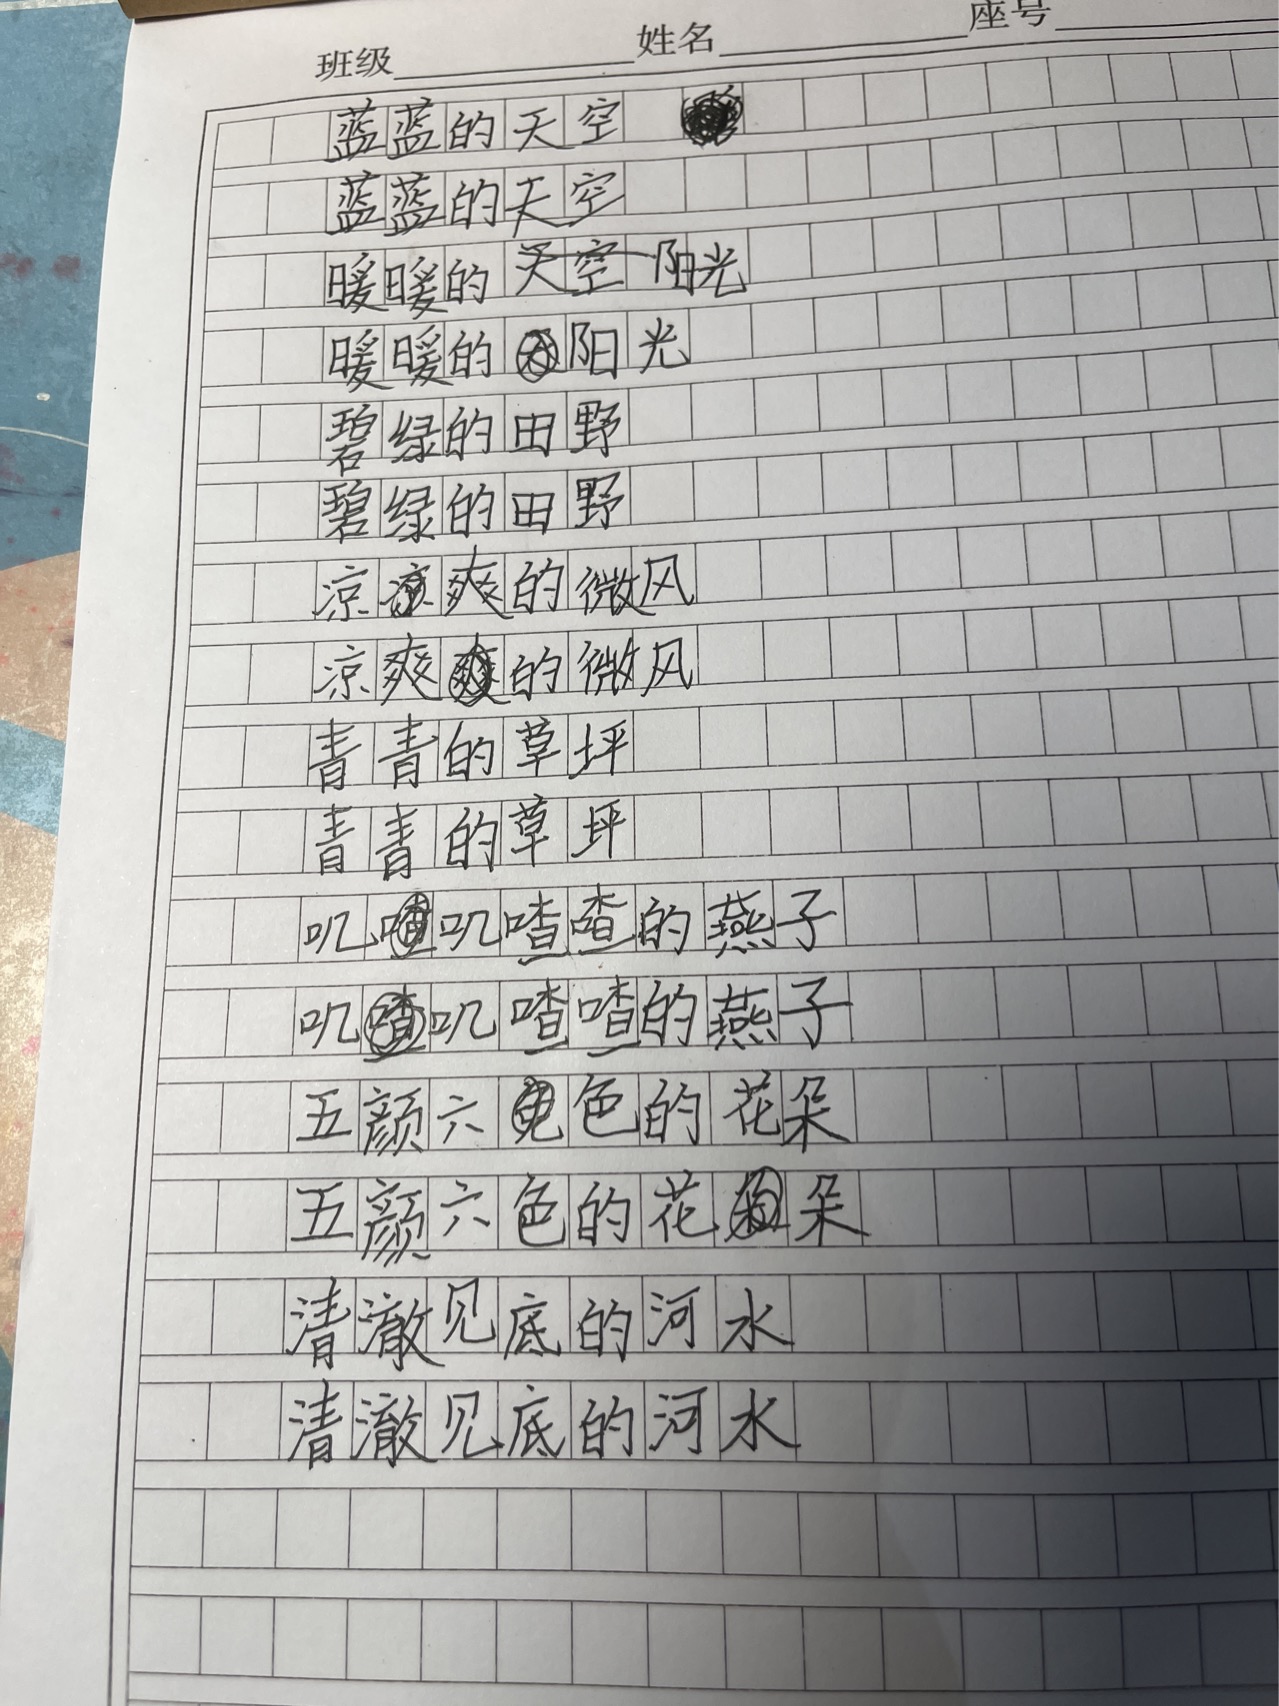 班级 姓名 座号
蓝蓝的天空
蓝蓝的天空
暖暖的天空阳光
暖暖的阳光
碧绿的田野
碧绿的田野
凉爽的微风
凉爽的微风
青青的草坪
青青的草坪
叽叽喳喳的燕子
叽叽喳喳的燕子
五颜六色的花朵
五颜六色的花朵
清澈见底的河水
清澈见底的河水